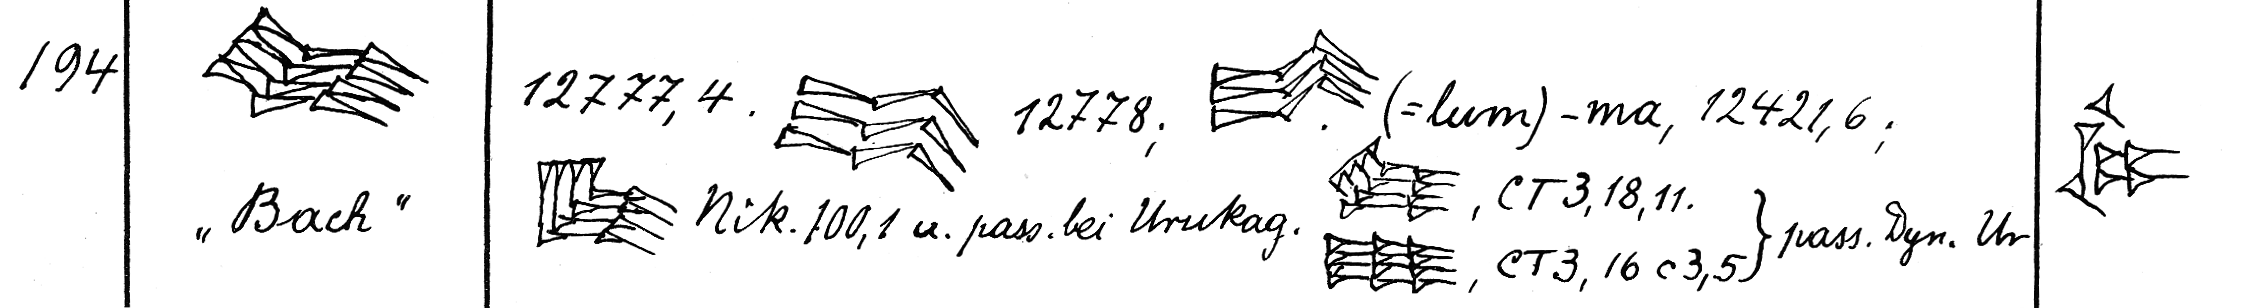 194 12777, 4. 12778; (=lum)-ma, 12421, 6;
„Bach“ Nik. 100, 1 u. pass. bei Urukag. , CT 3, 18, 11.
, CT 3, 16 c 3, 5 } pass. Dyn. Ur